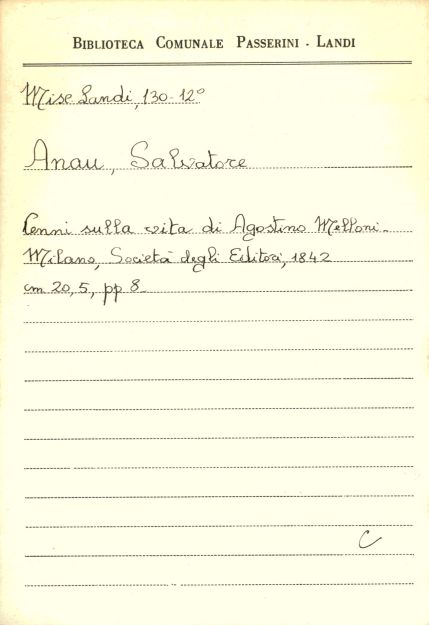 BIBLIOTECA COMUNALE PASSERINI - LANDI
Misc Landi, 130-12°
Anau, Salvatore
Cenni sulla vita di Agostino Melloni.
Milano, Società degli Editori, 1842
cm 20,5, pp 8.
C